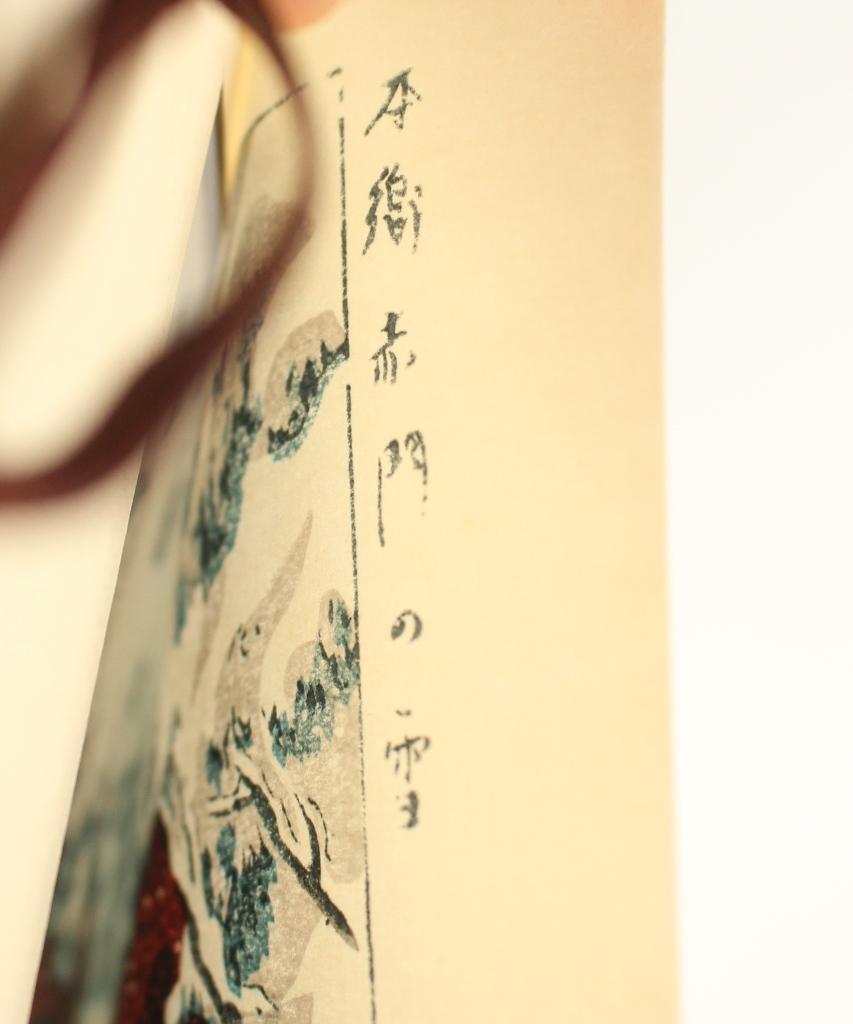 本郷赤門の雪